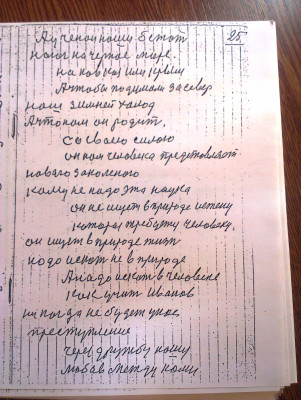 25
А ученои нашы бегот
на юг на черное море
на ковкас или крым
А чтобы подумат за север
наш зимней холод
А что нам он родит.
со своею силою
он нам человека представляет
новаго законенаго
кому не надо эта наука
он не ищет в природе истену
каторая требует человеку.
он ищет в природе
надо искат не в природе
А надо искат в человеке
как учит Иванов
ни когда не будет у нас
преступление
через дружбу нашу
любов между нами.